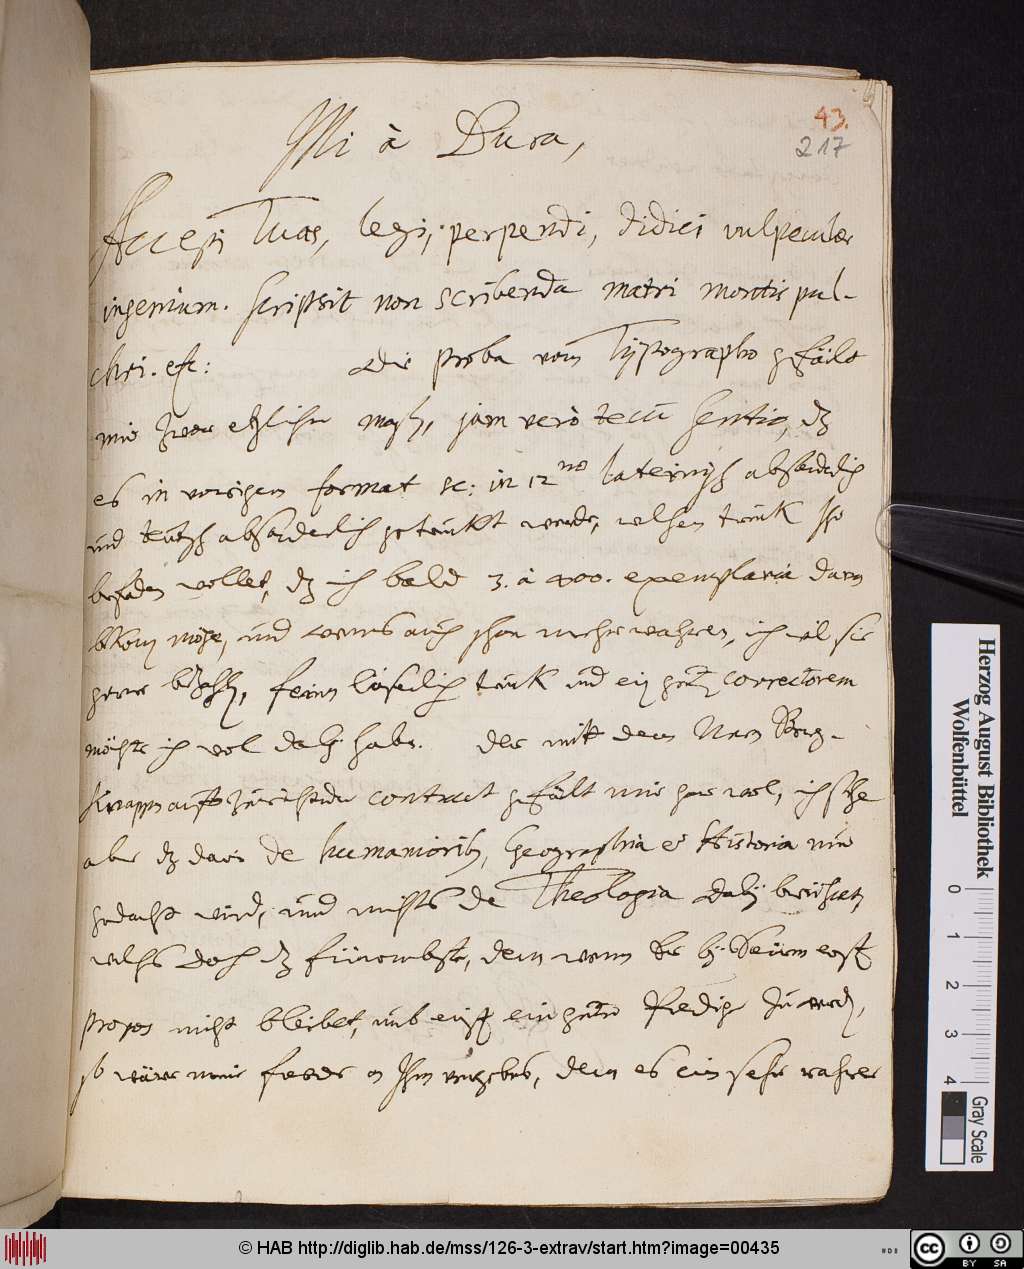 43.
217
Mi à Dura,
Accepi Tuas, legi, perpendi, didici vulpeculae
ingenium. scripsit non scribenda matri montis pul-
chri. etc: Die proba vom Typographo gefält
mir zwar etzlicher maßen, jam verò tecum sentio, dz
es in vorigem format sc: in 12mo lateinisch absonderlich
und teutsch absonderlich getruckt werde, welchen truck
wollet, dz ich bald 3. à 400. exemplaria davon
bekom möge, und wenns auch schon mehr wahren, ich wil sie
gern, feinen truck und ein correctorem
möchte ich wol dabej haben. Der mit dem Burg-
contract gefält mir gar wol, ich sehe
aber dz darin de humanioribus, Geographia et Historia nur
gedacht wird, und nichts de Theologia dabej
welchs doch dz fürnembste, denn wenn er bej seinem
propos nicht bleibet, umb einst ein Prediger zu werden,
so wäre meine an Ihm vergebens, denn es ein sehr rahrer
Herzog August Bibliothek
Wolfenbüttel
0 1 2 3 4
Gray Scale
© HAB http://diglib.hab.de/mss/126-3-extrav/start.htm?image=00435
cc BY SA